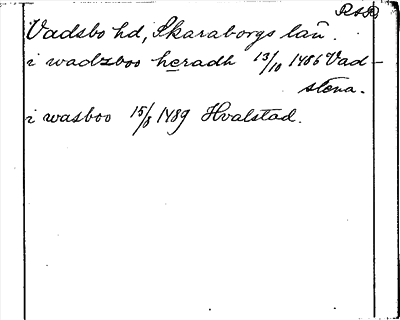 Vadsbo hd, Skaraborgs län.
i wadzboo heradh 13/10 1486 Vad-
stena.
i wasboo 15/8 1489 Hvalstad.